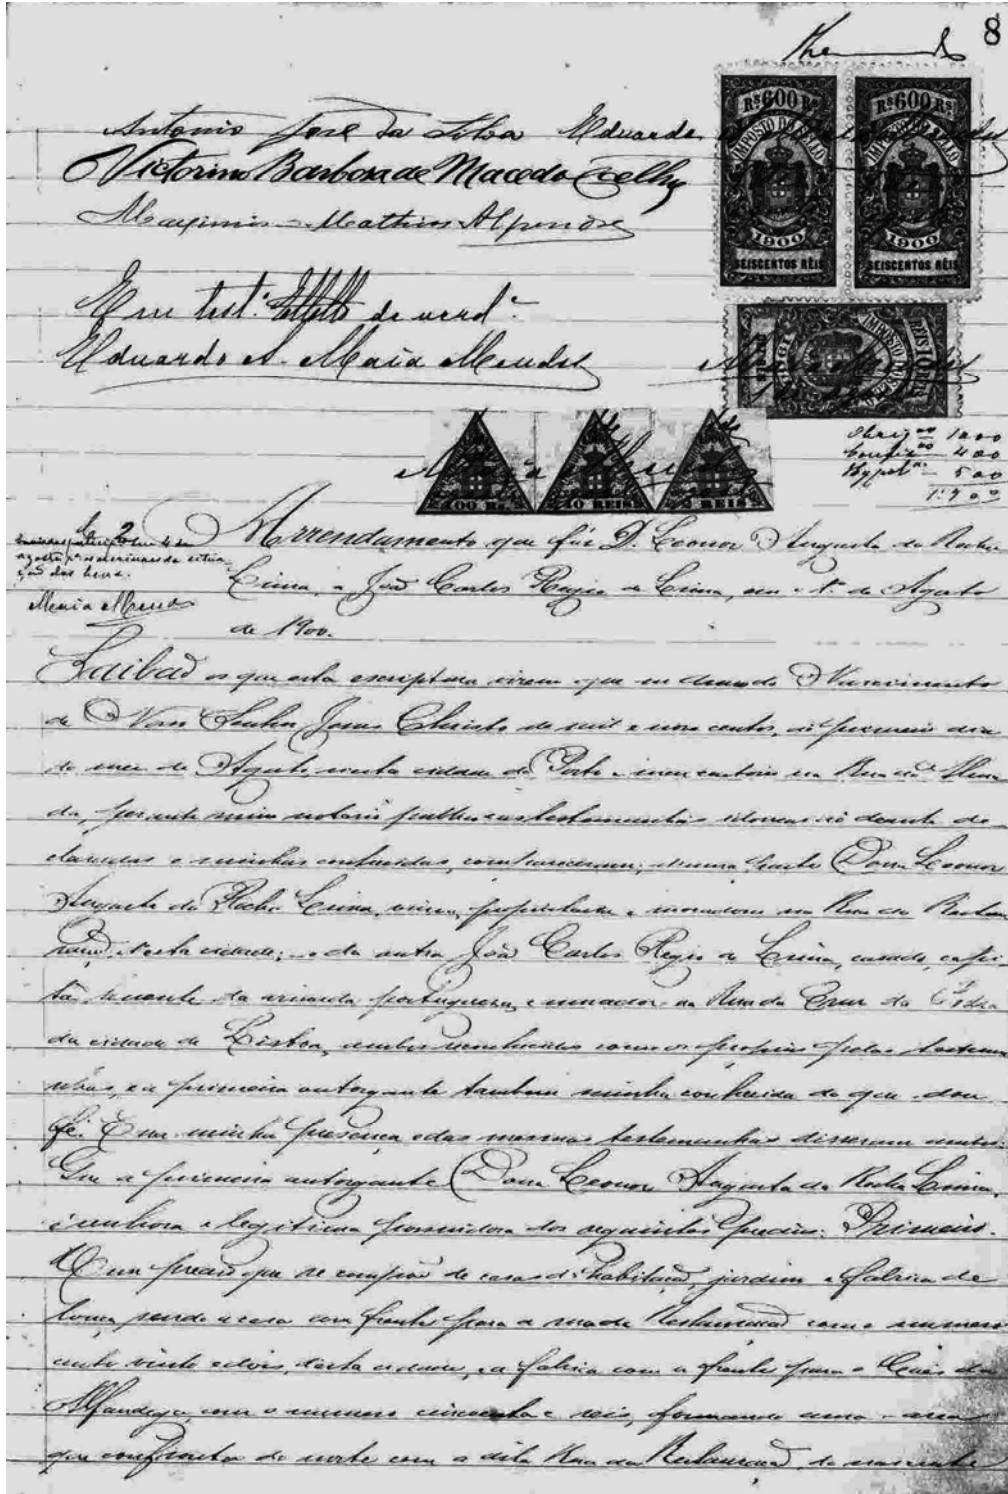 8
Antonio José da Silva Eduardo
Victorino Barbosa de Macedo Coelho
Maximino Mathias Alpendre
Rs 600 Rs
IMPOSTO DO SELLO
1900
SEISCENTOS RÉIS
Rs 600 Rs
IMPOSTO DO SELLO
1900
SEISCENTOS RÉIS
Em test.º de verd.e
Eduardo A. Maia Mendes
100 Rs.
10 REIS
REIS
1000
400
Hypot 500
Maia Mendes
Arrendamento que faz D. Leonor Augusta da Rocha
Lima, a João Carlos Regio de Lima, em 1.º de Agosto
de 1900.
Saibão os que esta escriptura virem que no anno do Nascimento
de Nosso Senhor Jesus Christo de mil e nove centos, ao primeiro dia
do mez de Agosto nesta cidade do Porto e meu cartorio na Rua
perante mim notario publico e as testemunhas idoneas ao deante de-
claradas e minhas conhecidas, compareceram; d'uma parte Dona Leonor
Augusta da Rocha Lima, viuva, proprietaria e moradora na Rua da Restau
ração, d'esta cidade; e da outra João Carlos Regio de Lima, casado, capi
tão tenente da armada portugueza, e morador na Rua da Cruz da Pedra
da cidade de Lisboa, ambos reconhecidos como os proprios pelas testemu
nhas, e a primeira outorgante tambem minha conhecida do que dou
fé. E na minha presença e das mesmas testemunhas disseram ambos:
Que a primeira outorgante Dona Leonor Augusta da Rocha Lima,
é senhora e legitima possuidora dos seguintes predios: Primeiro.
Um predio que se compõe de casas d'habitação, jardim e fabrica de
louça, sendo a casa com frente para a rua da Restauração com o numero
cento vinte e dois, desta cidade, e a fabrica com a frente para o Caes da
Alfandega com o numero cincoenta e seis, formando uma area
que confronta do norte com a dita Rua da Restauração, do nascente